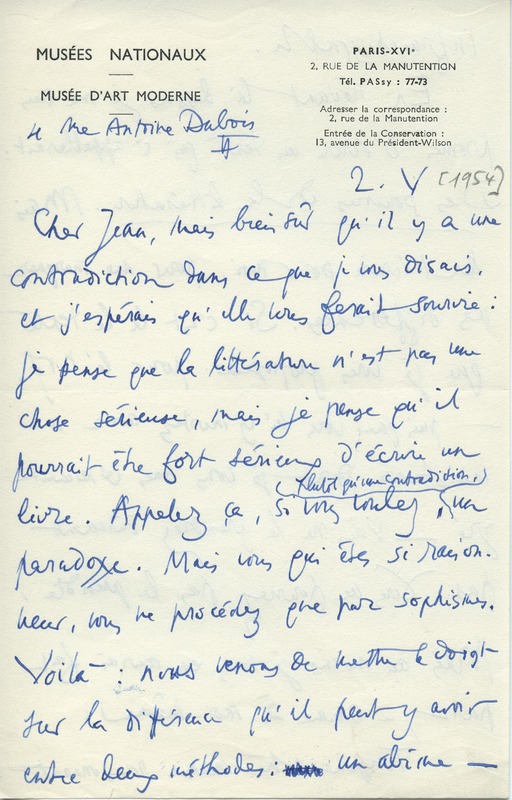 MUSÉES NATIONAUX
MUSÉE D'ART MODERNE
PARIS-XVIe
2, RUE DE LA MANUTENTION
Tél. PASsy : 77-73
Adresser la correspondance :
2, rue de la Manutention
Entrée de la Conservation :
13, avenue du Président-Wilson
4 rue Antoine Dubois
2. V [1954]
Cher Jean, mais bien sûr qu'il y a une
contradiction dans ce que je vous disais.
et j'espérais qu'elle vous ferait sourire :
je pense que la littérature n'est pas une
chose sérieuse, mais je pense qu'il
pourrait être fort sérieux d'écrire un
livre. Appelez ça, si vous voulez, (plutôt qu'une contradiction,) un
paradoxe. Mais vous qui êtes si raison-
neur, vous ne procédez que par sophismes.
Voilà : nous venons de mettre le doigt
sur la différence qu'il peut y avoir
entre deux méthodes : un abîme —